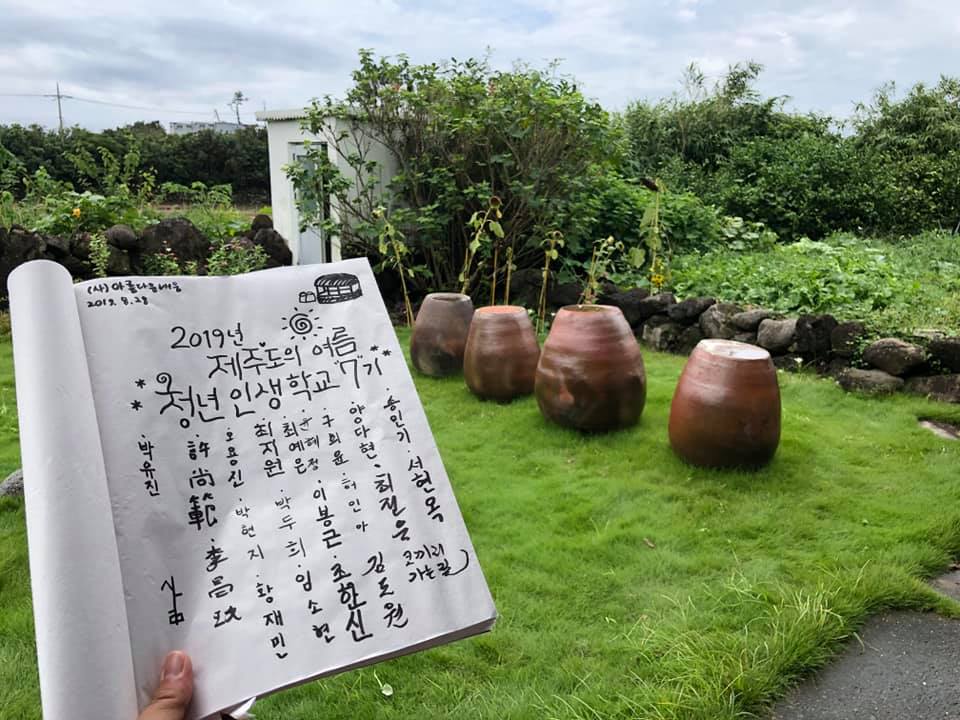 (사)아름다운배움
2019. 8. 28
2019년
제주도의 여름
청년 인생학교 "7"기
박유진
許尚範
오용신
최지원
최예은
윤혜정
구희윤
양다현
송인기
李昌
박현지
박두희
이봉근
허인아
최진은
서현옥
황재민
임소현
조한신
김도원
코끼리
가는길